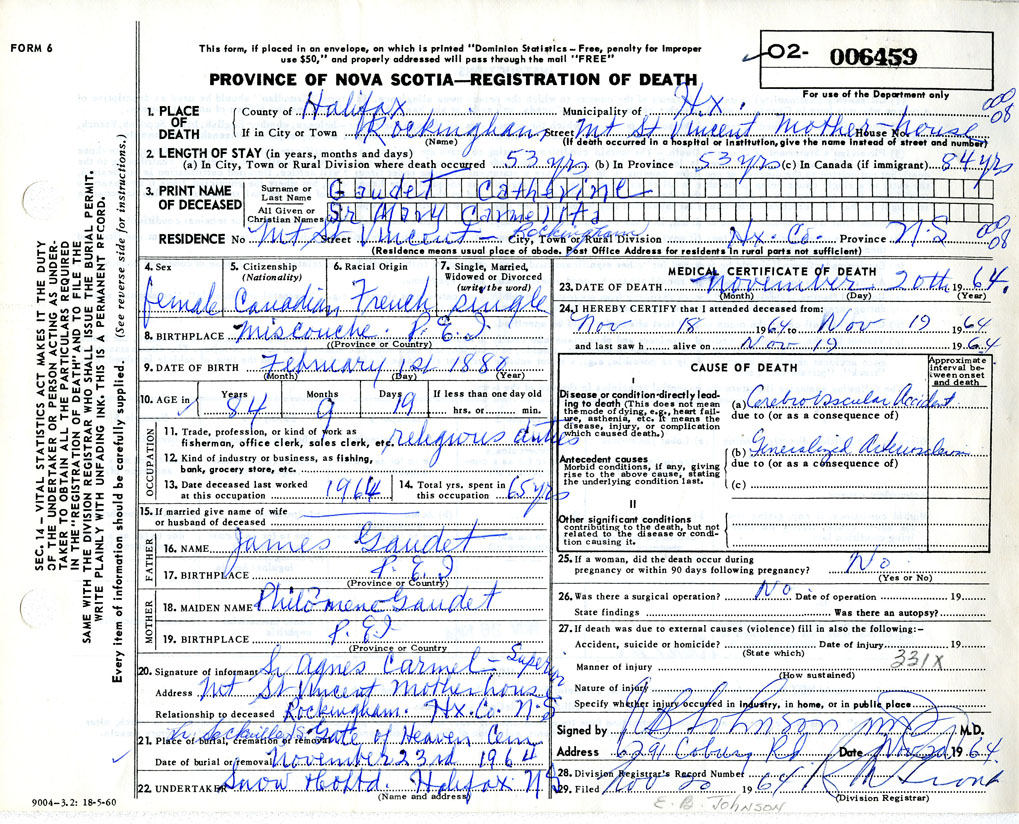 FORM 6
This form, if placed in an envelope, on which is printed "Dominion Statistics – Free, penalty for improper
use $50," and properly addressed will pass through the mail "FREE"
PROVINCE OF NOVA SCOTIA—REGISTRATION OF DEATH
02- 006459
For use of the Department only
1. PLACE OF DEATH County of Halifax Municipality of Hx. 000 08
If in City or Town Rockingham Street Mt St Vincent Mother-house House No.
(Name) (If death occurred in a hospital or institution, give the name instead of street and number)
2. LENGTH OF STAY (in years, months and days)
(a) In City, Town or Rural Division where death occurred 53 yrs (b) In Province 53 yrs (c) In Canada (if immigrant) 84 yrs
3. PRINT NAME OF DECEASED Surname or Last Name Gaudet Catherine
All Given or Christian Names Sr Mary Carmelita
RESIDENCE No Mt St Vincent – Street Rockingham City, Town or Rural Division Hx. Co. Province N.S 000 08
(Residence means usual place of abode. Post Office Address for residents in rural parts not sufficient)
4. Sex female
5. Citizenship (Nationality) Canadian
6. Racial Origin French
7. Single, Married, Widowed or Divorced (write the word) single
8. BIRTHPLACE Miscouche. P.E.I
(Province or Country)
9. DATE OF BIRTH February 1st 1880
(Month) (Day) (Year)
10. AGE in Years 84 Months 9 Days 19 If less than one day old hrs. or min.
OCCUPATION
11. Trade, profession, or kind of work as fisherman, office clerk, sales clerk, etc. religious duties
12. Kind of industry or business, as fishing, bank, grocery store, etc.
13. Date deceased last worked at this occupation 1964
14. Total yrs. spent in this occupation 65 yrs
15. If married give name of wife or husband of deceased
FATHER
16. NAME James Gaudet
17. BIRTHPLACE P.E.I
(Province or Country)
MOTHER
18. MAIDEN NAME Philomene Gaudet
19. BIRTHPLACE P.E.I
(Province or Country
20. Signature of informant Sr Agnes Carmel – Superior
Address Mt. St Vincent Motherhouse
Relationship to deceased Rockingham. Hx. Co. N.S
21. Place of burial, cremation or removal Sackville Gate of Heaven Cem
Date of burial or removal November 23rd 1964
22. UNDERTAKER Snow & Co Ltd. Halifax N.S
(Name and address)
MEDICAL CERTIFICATE OF DEATH
23. DATE OF DEATH November 20th 1964.
(Month) (Day) (Year)
24. I HEREBY CERTIFY that I attended deceased from:
Nov 18 1964 to Nov 19 1964
and last saw h alive on Nov 19 1964
CAUSE OF DEATH
Approximate interval between onset and death
I
Disease or condition directly leading to death (This does not mean the mode of dying, e.g., heart failure, asthenia, etc. It means the disease, injury, or complication which caused death.)
(a) Cerebrovascular Accident
due to (or as a consequence of)
Antecedent causes
Morbid conditions, if any, giving rise to the above cause, stating the underlying condition last.
(b) Generalized Arteriosclerosis
due to (or as a consequence of)
(c)
II
Other significant conditions
contributing to the death, but not related to the disease or condition causing it.
25. If a woman, did the death occur during pregnancy or within 90 days following pregnancy? No
(Yes or No)
26. Was there a surgical operation? No Date of operation 19
State findings Was there an autopsy?
27. If death was due to external causes (violence) fill in also the following:–
Accident, suicide or homicide? Date of injury 19
(State which) 331X
Manner of injury
(How sustained)
Nature of injury
Specify whether injury occurred in industry, in home, or in public place
Signed by EB Johnson M.D.
Address 6291 Coburg Rd Date Nov. 20 1964.
28. Division Registrar's Record Number
29. Filed Nov 20 1964
(Division Registrar)
E. B. JOHNSON
9004–3.2: 18-5-60
SEC. 14 – VITAL STATISTICS ACT MAKES IT THE DUTY
OF THE UNDERTAKER OR PERSON ACTING AS UNDER-
TAKER TO OBTAIN ALL THE PARTICULARS REQUIRED
IN THE "REGISTRATION OF DEATH" AND TO FILE THE
SAME WITH THE DIVISION REGISTRAR WHO SHALL ISSUE THE BURIAL PERMIT.
WRITE PLAINLY WITH UNFADING INK. THIS IS A PERMANENT RECORD.
Every item of information should be carefully supplied. (See reverse side for instructions.)